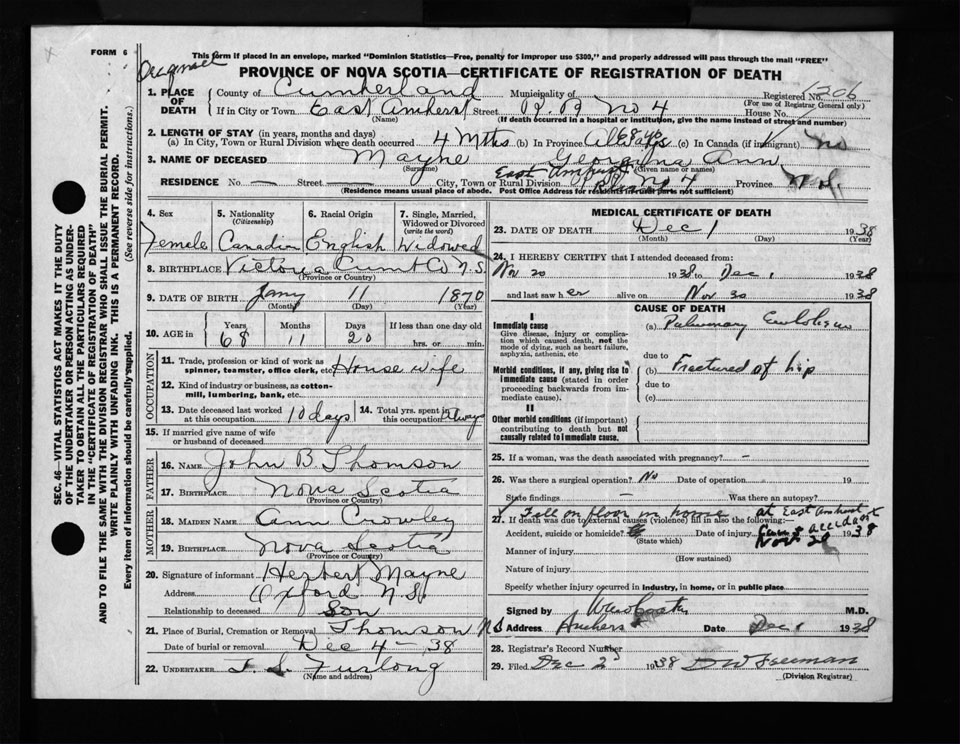 FORM 6
This form if placed in an envelope, marked "Dominion Statistics—Free, penalty for improper use $300," and properly addressed will pass through the mail "FREE"
Original
PROVINCE OF NOVA SCOTIA—CERTIFICATE OF REGISTRATION OF DEATH
1. PLACE OF DEATH County of Cumberland Municipality of Registered No. 206
(For use of Registrar General only)
If in City or Town East Amherst Street R.R No 4 House No.
(Name) (If death occurred in a hospital or institution, give the name instead of street and number)
2. LENGTH OF STAY (in years, months and days)
(a) In City, Town or Rural Division where death occurred 4 Mths (b) In Province 68 yrs (c) In Canada (if immigrant) no
3. NAME OF DECEASED Mayne Georgina Ann
(Surname) (Given name or names)
RESIDENCE No — Street — City, Town or Rural Division East Amherst No 4 Province N.S.
(Residence means usual place of abode. Post Office Address for residents in rural parts not sufficient)
4. Sex 5. Nationality (Citizenship) 6. Racial Origin 7. Single, Married, Widowed or Divorced (write the word)
Female Canadian English Widowed
8. BIRTHPLACE Victoria Cumb Co N.S.
(Province or Country)
9. DATE OF BIRTH Jany 11 1870
(Month) (Day) (Year)
10. AGE in Years Months Days If less than one day old
68 11 20 hrs. or min.
OCCUPATION
11. Trade, profession or kind of work as spinner, teamster, office clerk, etc House wife
12. Kind of industry or business, as cotton-mill, lumbering, bank, etc.
13. Date deceased last worked at this occupation 10 days 14. Total yrs. spent in this occupation always
15. If married give name of wife or husband of deceased
FATHER
16. NAME John B. Thomson
17. BIRTHPLACE Nova Scotia
(Province or Country)
MOTHER
18. MAIDEN NAME Ann Crowley
19. BIRTHPLACE Nova Scotia
(Province or Country)
20. Signature of informant Herbert Mayne
Address Oxford N.S.
Relationship to deceased Son
21. Place of Burial, Cremation or Removal Thomson NS
Date of burial or removal Dec 4 - 38
22. UNDERTAKER Furlong
(Name and address)
MEDICAL CERTIFICATE OF DEATH
23. DATE OF DEATH Dec 1 1938
(Month) (Day) (Year)
24. I HEREBY CERTIFY that I attended deceased from:
Nov 20 1938 to Dec 1 1938
and last saw her alive on Nov 30 1938
CAUSE OF DEATH
I
Immediate cause (a) Pulmonary Embolism
Give disease, injury or complication which caused death, not the mode of dying, such as heart failure, asphyxia, asthenia, etc
due to
Morbid conditions, if any, giving rise to immediate cause (stated in order proceeding backwards from immediate cause).
(b) Fractured hip
due to
(c)
II
Other morbid conditions (if important) contributing to death but not causally related to immediate cause.
25. If a woman, was the death associated with pregnancy? -
26. Was there a surgical operation? No Date of operation 19
State findings — Was there an autopsy?
Fall on floor in house at East Amherst
27. If death was due to external causes (violence) fill in also the following:—
accident
Accident, suicide or homicide? Date of injury Nov 20 1938
(State which)
Manner of injury
(How sustained)
Nature of injury
Specify whether injury occurred in industry, in home, or in public place
Signed by M.D.
Address Amherst Date Dec 1 1938
28. Registrar's Record Number
29. Filed Dec 2 1938 D W Freeman
(Division Registrar)
SEC. 46—VITAL STATISTICS ACT MAKES IT THE DUTY
OF THE UNDERTAKER OR PERSON ACTING AS UNDER-
TAKER TO OBTAIN ALL THE PARTICULARS REQUIRED
IN THE "CERTIFICATE OF REGISTRATION OF DEATH"
AND TO FILE THE SAME WITH THE DIVISION REGISTRAR WHO SHALL ISSUE THE BURIAL PERMIT.
WRITE PLAINLY WITH UNFADING INK. THIS IS A PERMANENT RECORD.
Every item of information should be carefully supplied. (See reverse side for instructions.)